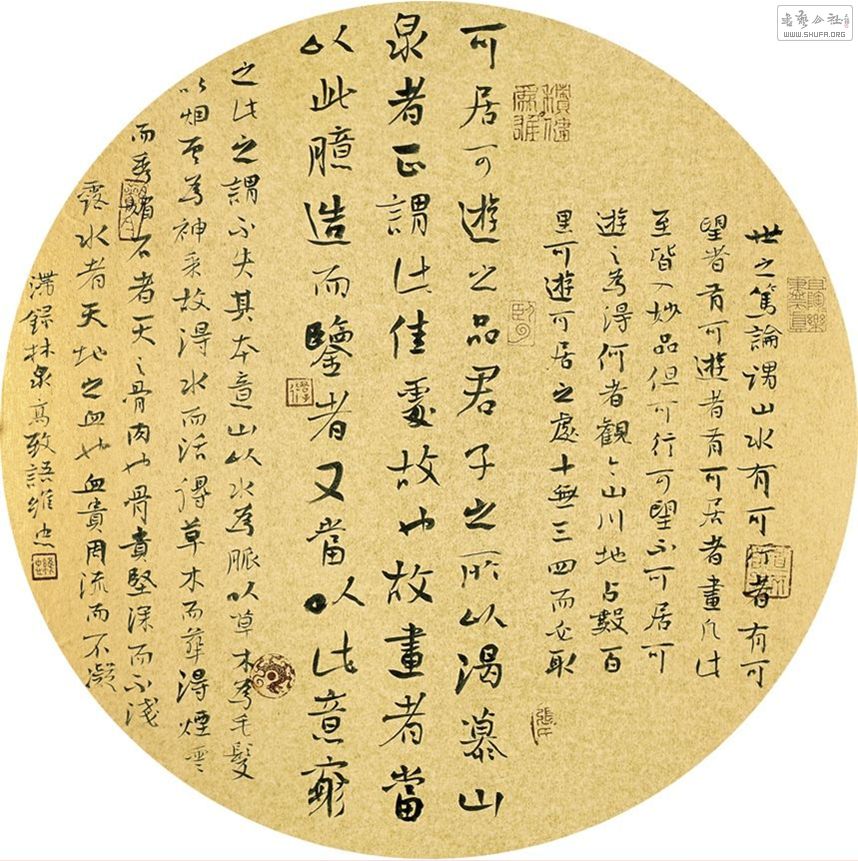 世之篤論謂山水有可者有可
望者有可遊者有可居者畫凡此
至皆入妙品但可行可望不可居可
遊之為得何者觀今山川地占數百
里可遊可居之處十無三四而必取
可居可遊之品君子之所以渴慕山
泉者正謂此佳處故也故畫者當
以此臆造而鑒者又當以此意窮
之此之謂不失其本意山以水為脈以草木為毛髮
以烟雲為神采故得水而活得草木而華得煙雲
而秀媚石者天之骨肉也骨貴堅深而不淺
露水者天地之血也血貴周流而不凝
滯錄林泉高致語維忠
书艺公社
WWW.SHUFA.ORG